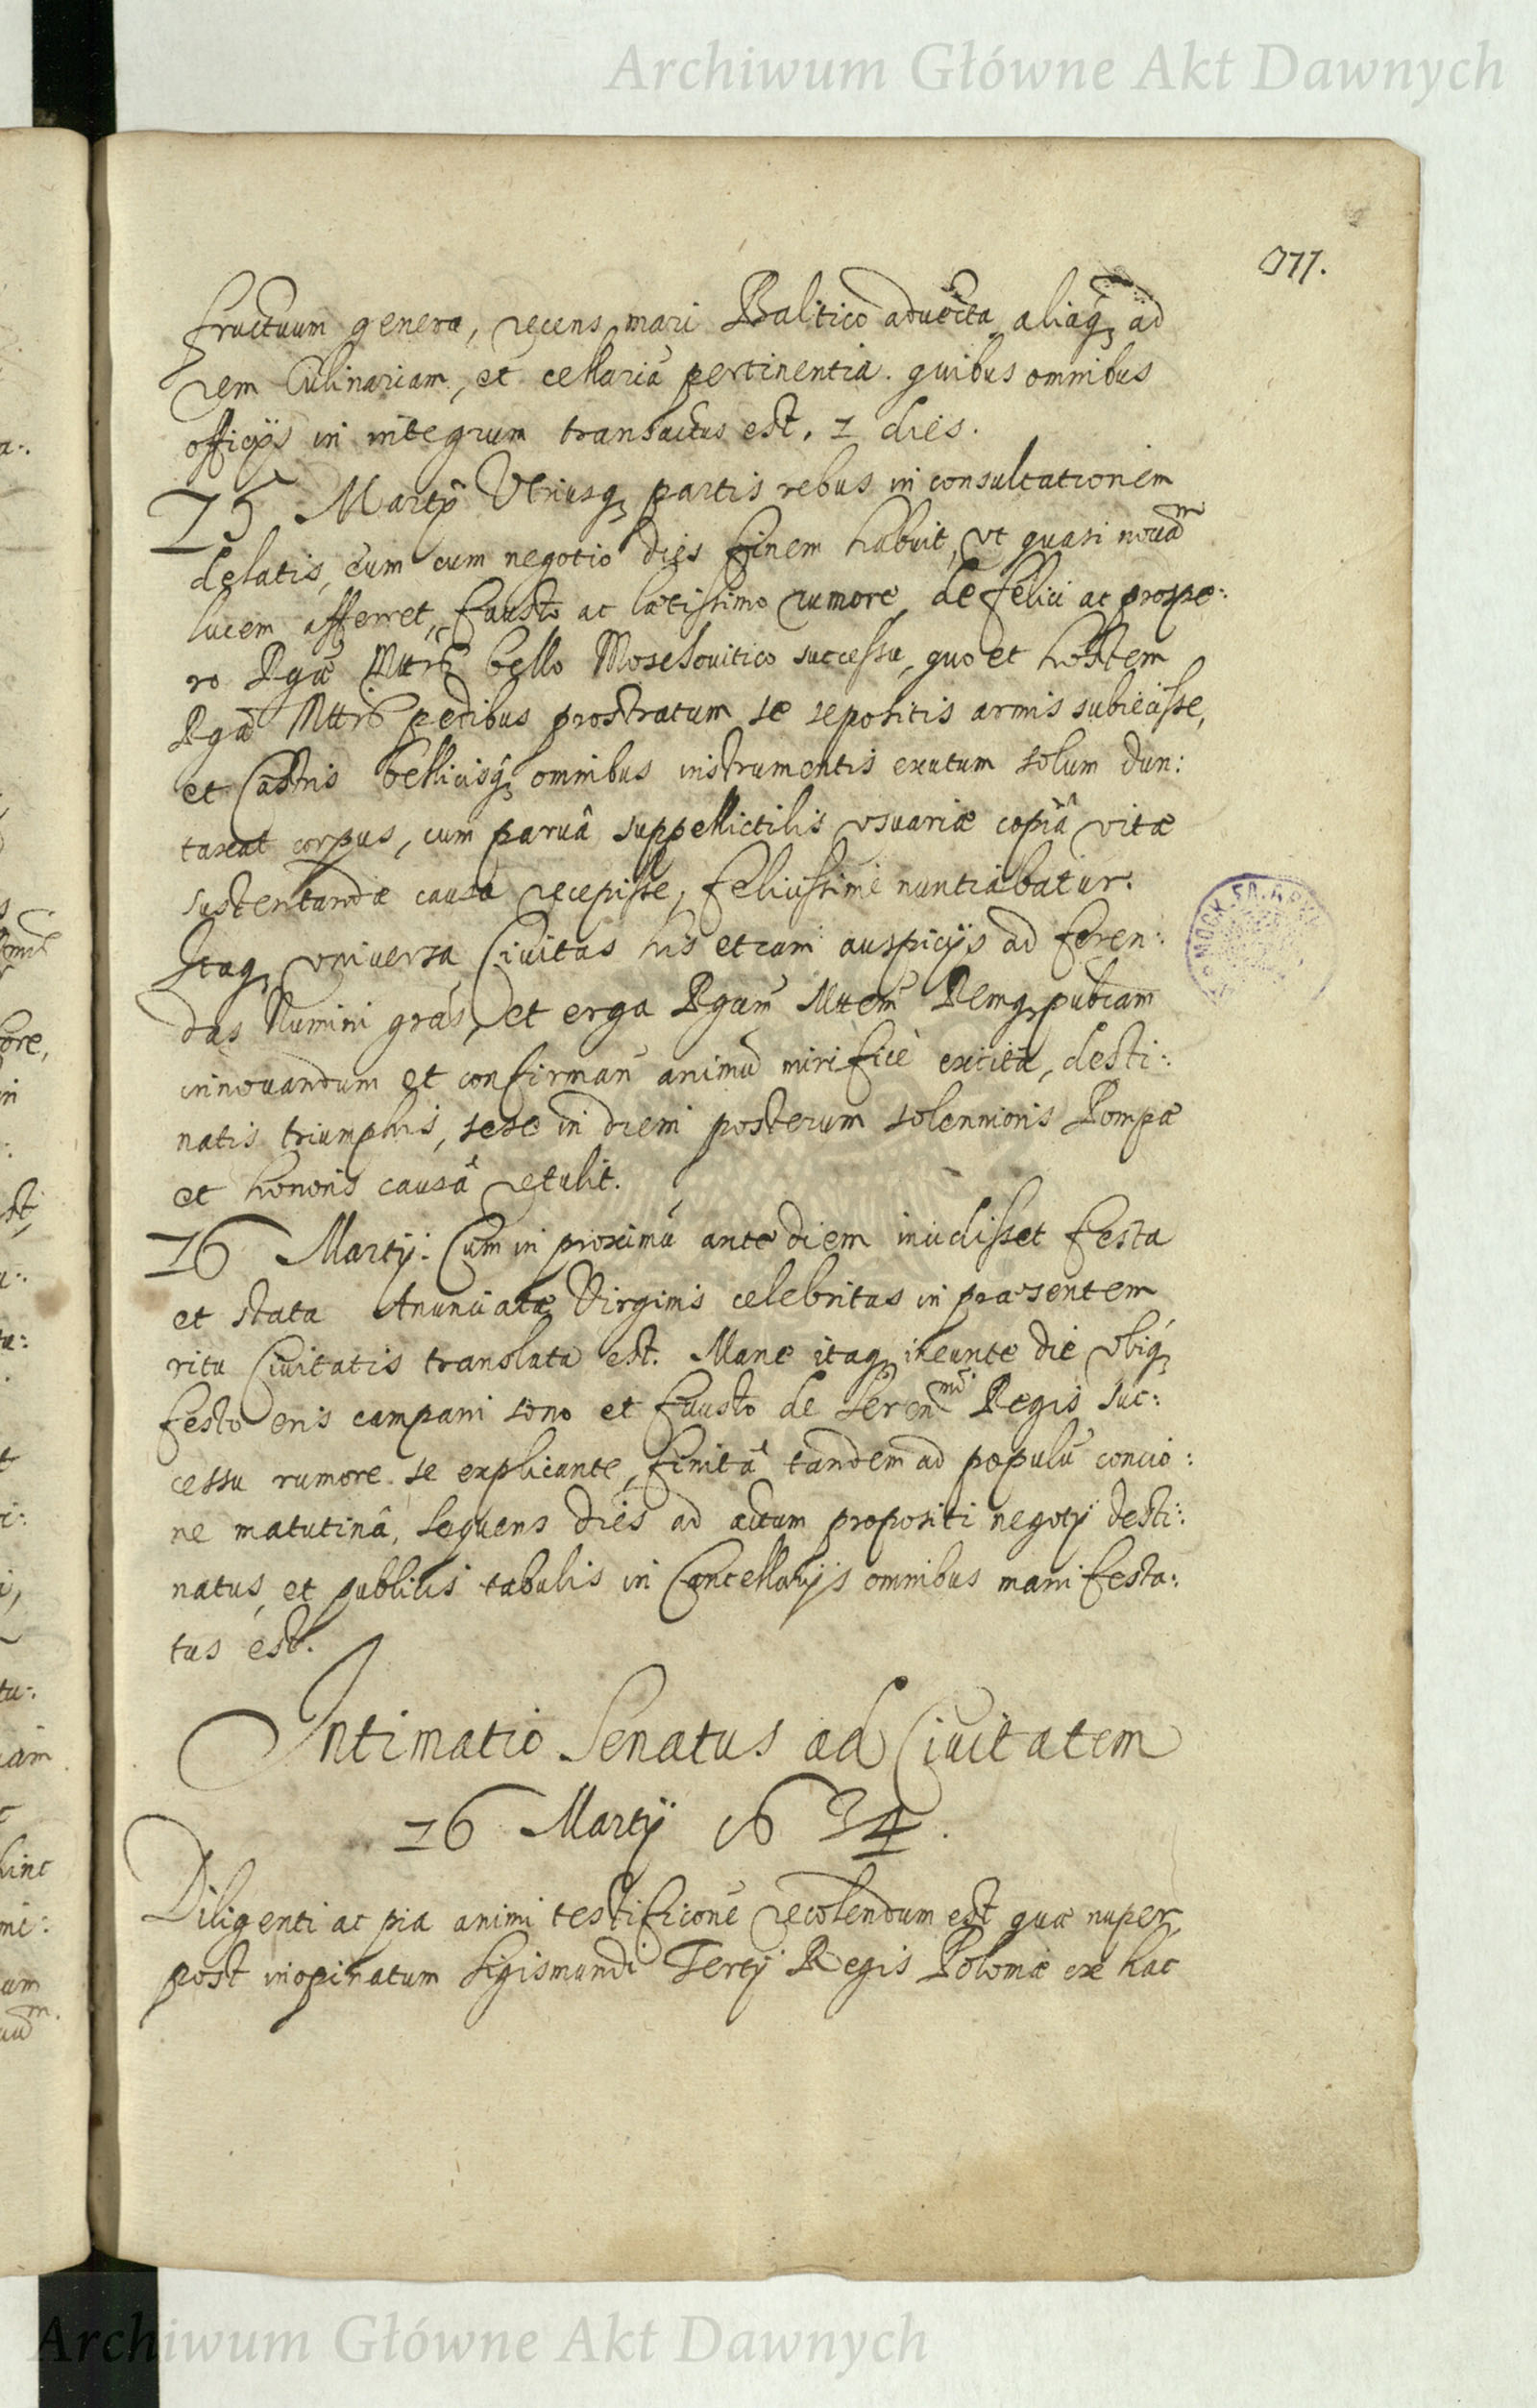 Archiwum Główne Akt Dawnych
377.
fructuum genera, recens mari Baltico aduecta aliaq; ad
rem Culinariam, et cellariã pertinentia. quibus omnibus
officijs in integrum transactus est. 1 dies.
25 Martij Vtriusq; partis rebus in consultationem
delatis, cum cum negotio dies finem habuit, vt quasi nouam
lucem afferret, fausto ac lætissimo rumore, de felici ac prospe:
ro Rgæ Mttis bello Moschouitico successu, quo et hostem
Rgæ Mttis pedibus prostratum se sepositis armis subiecisse,
et Castris bellicisq; omnibus instrumentis exutum solum dun:
taxat corpus, cum paruâ suppellictilis vsuariæ copiâ vitæ
sustentandæ causa recepisse, felicissime nuntiabatur.
Itaq; vniuersa Ciuitas his etiam auspicijs ad feren:
das Numini grãs, et erga Rgam Mttem Remq; publcam
innouandum et confirman animũ mirifice excita, desti:
natis triumphis, sese in diem posterum solennioris Pompæ
et honoris causâ retulit.
26 Martij: Cum in proximũ ante diem incidisset festa
et stata Anunciatæ Virginis celebritas in præsentem
ritu Ciuitatis translata est. Mane itaq; ineunte die vbiq;
festo eris campani sono et fausto de Serenmi Regis suc:
cessu rumore se explicante, finitâ tandem ad populũ concio:
ne matutinâ, sequens dies ad actum propositi negotij desti:
natus, et publicis tabulis in Cancellarijs omnibus manifesta:
tus est.
Intimatio Senatus ad Ciuitatem
26 Martij 1634.
Diligenti ac pia animi testificone recolendum est quæ nuper
post inopinatum Sigismundi Tertij Regis Poloniæ ex hac
Archiwum Główne Akt Dawnych